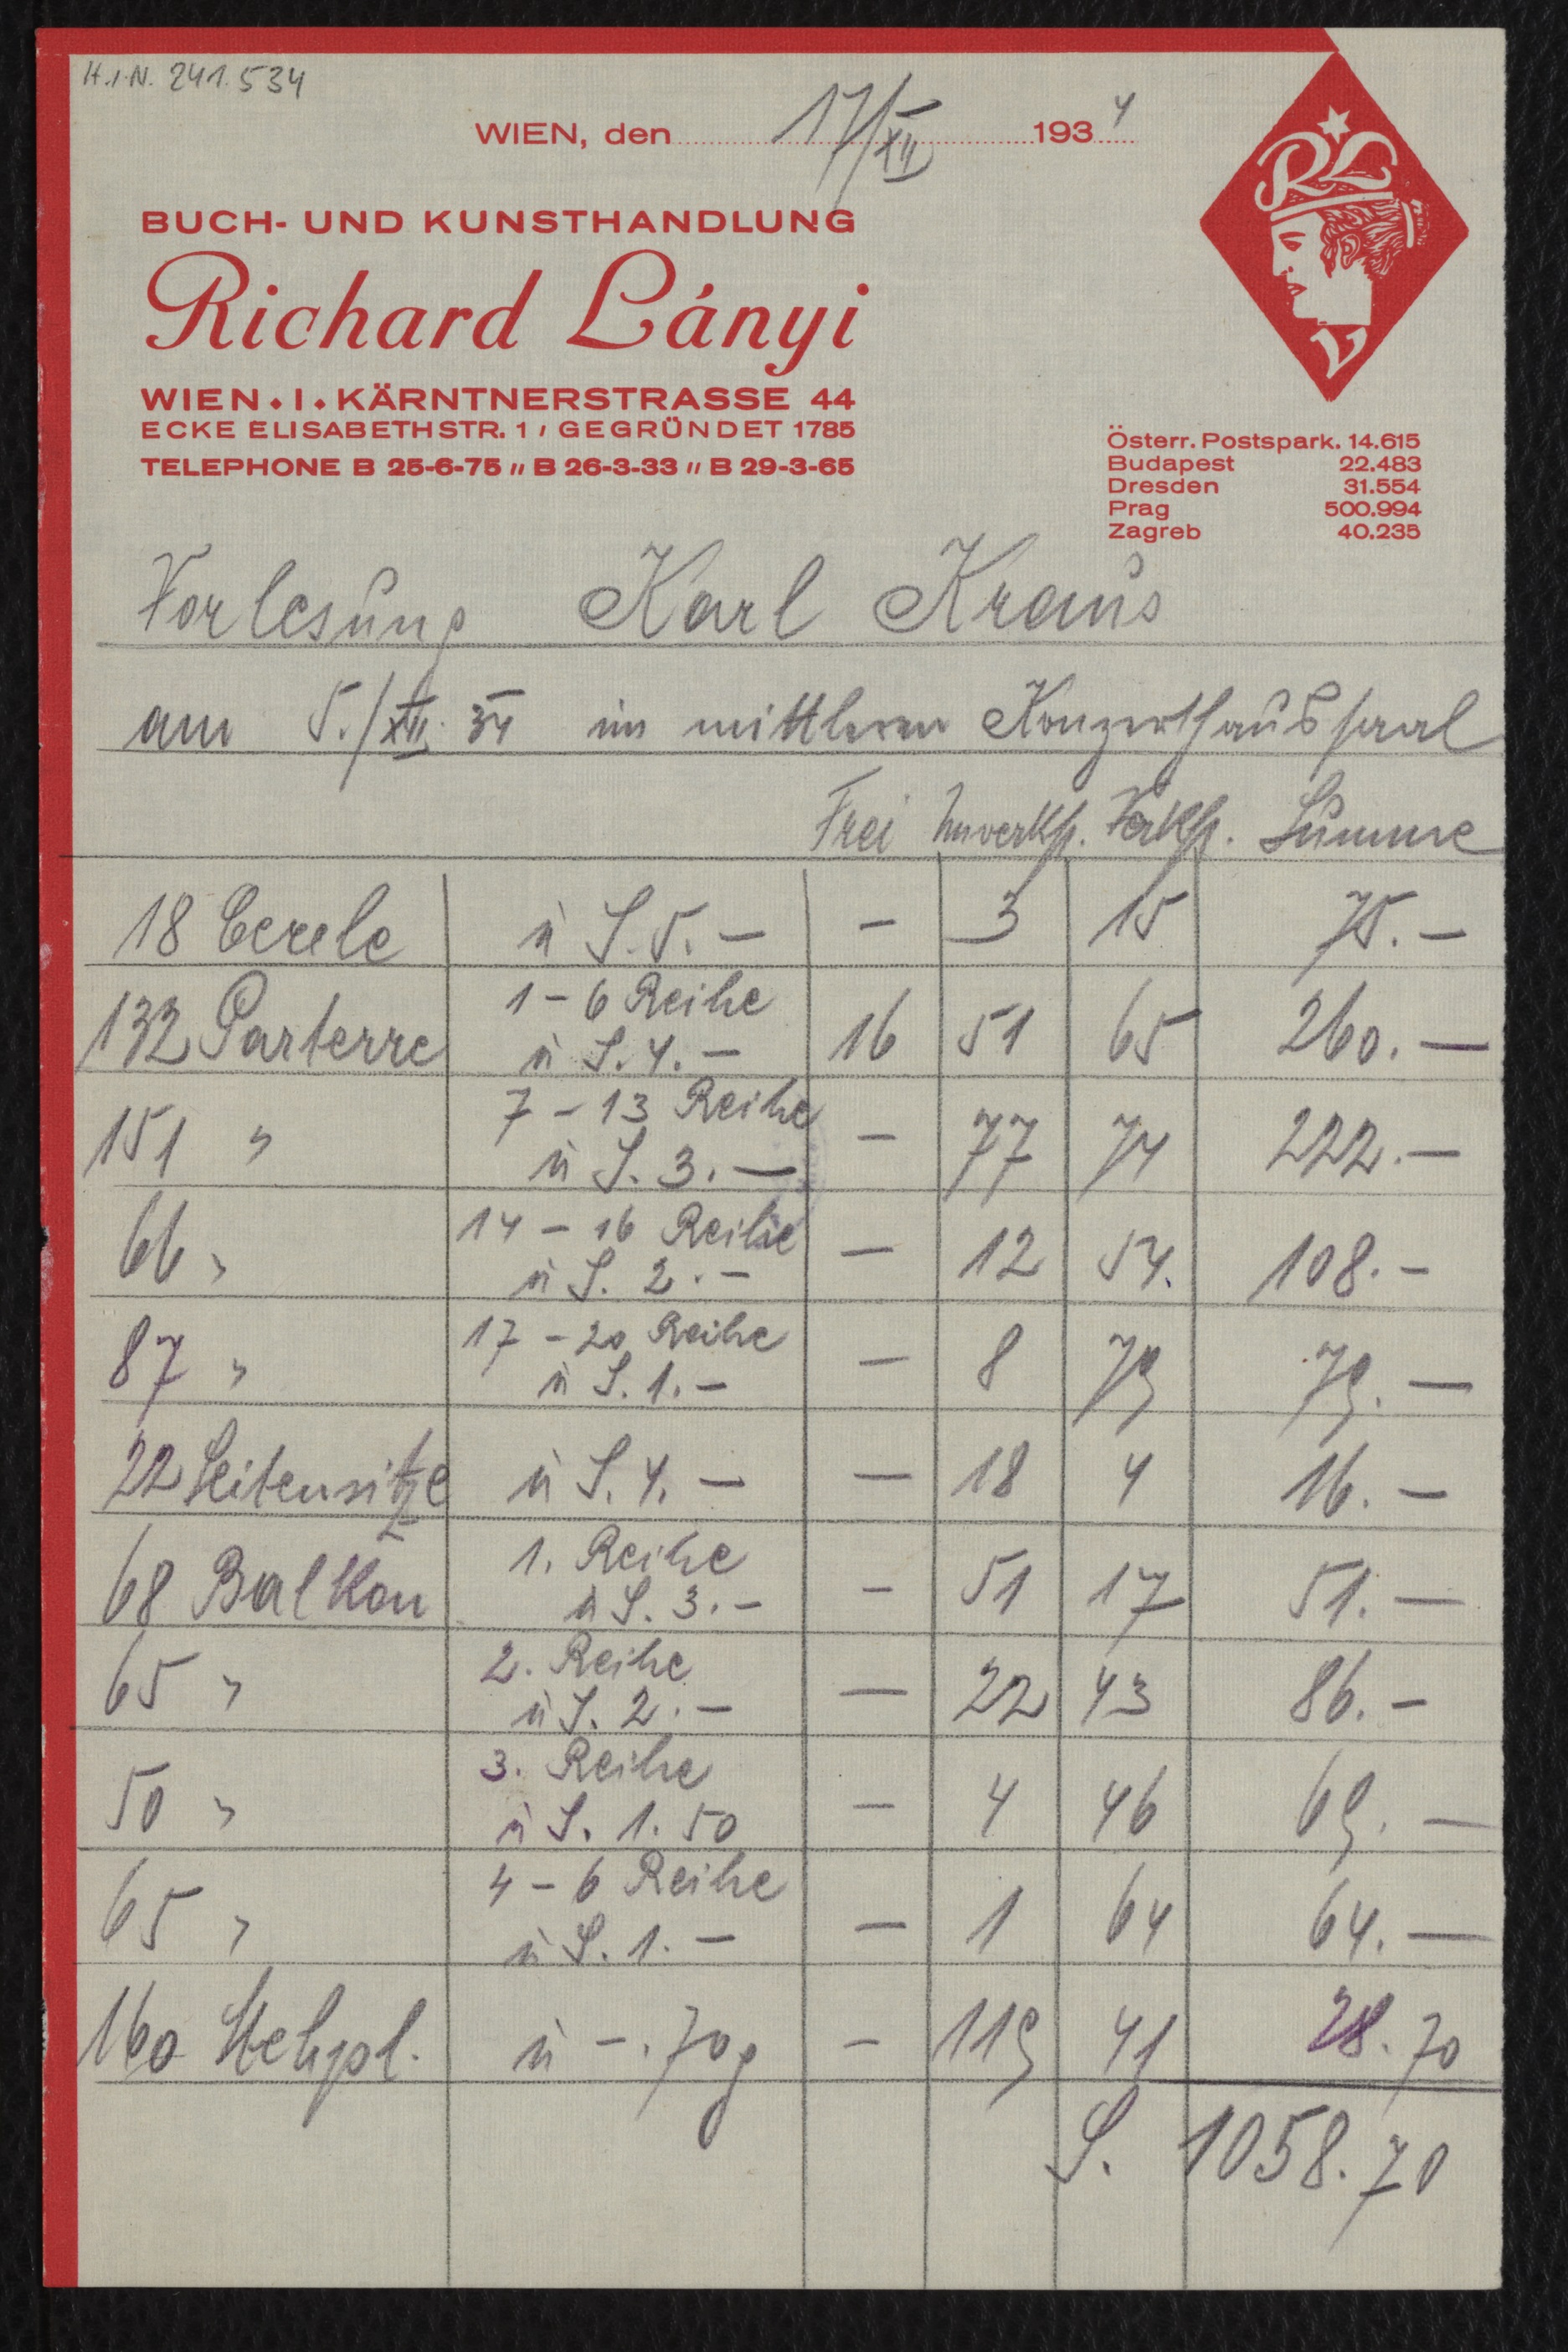 H.I.N. 241.534
WIEN, den 17/XII 1934
RL
BUCH- UND KUNSTHANDLUNG
Richard Lányi
WIEN • I • KÄRNTNERSTRASSE 44
ECKE ELISABETHSTR. 1 / GEGRÜNDET 1785
TELEPHONE B 25-6-75 // B 26-3-33 // B 29-3-65
Österr. Postspark. 14.615
Budapest 22.483
Dresden 31.554
Prag 500.994
Zagreb 40.235
Vorlesung Karl Kraus
am 5./XII. 34 im mittleren Konzerthaussaal
Frei Unverkft. Verkft. Summe
18 Cercle à S. 5.— — 3 15 75.—
132 Parterre 1–6 Reihe à S. 4.— 16 51 65 260.—
151 " 7–13 Reihe à S. 3.— — 77 74 222.—
66 " 14–16 Reihe à S. 2.— — 12 54. 108.—
87 " 17–20 Reihe à S. 1.— — 8 79 79.—
22 Seitensitze à S. 4.— — 18 4 16.—
68 Balkon 1. Reihe à S. 3.— — 51 17 51.—
65 " 2. Reihe à S. 2.— — 22 43 86.—
50 " 3. Reihe à S. 1.50 — 4 46 69.—
65 " 4–6 Reihe à S. 1.— — 1 64 64.—
160 Stehpl. à —.70 g — 119 41 28.70
S. 1058.70